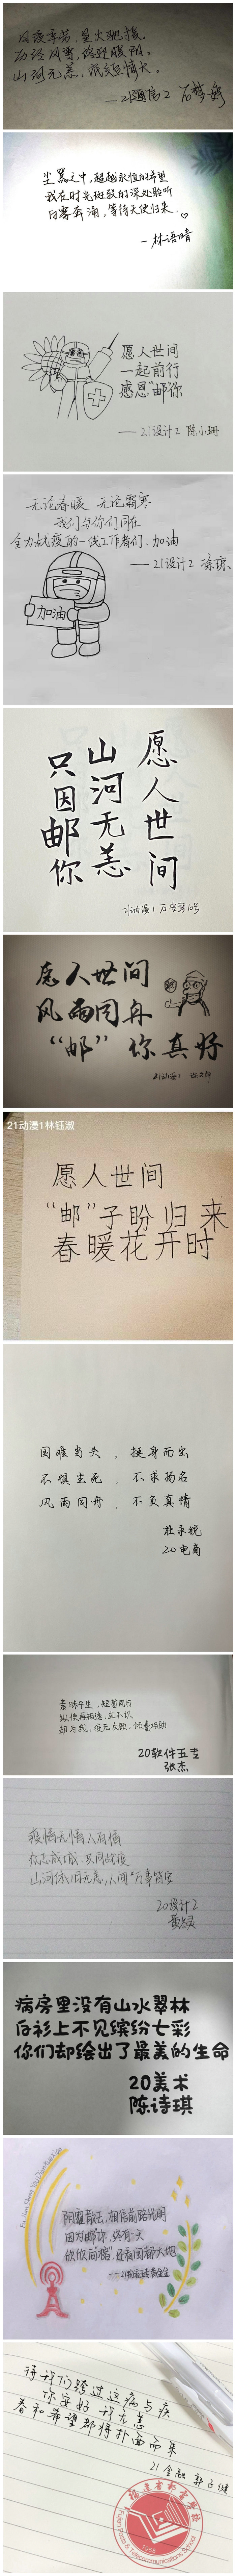 风波辛苦，星火驰援。
历经风雪，终迎暖阳。
山河无恙，
——21通信2
尘嚣之中，超越永恒的希望
我在时光斑驳的深处聆听
白雾奔涌，等待天使归来。
—林语晴
愿人世间
一起前行
感恩“邮”你
——21设计2 陈小珊
无论春暖 无论霜寒
我们与你们同在
全力战疫的一线工作者们，加油
——21设计2
加油
愿人世间
山河无恙
只因邮你
21动漫1
愿人世间
风雨同舟
“邮”你真好
21动漫1
21动漫1林钰淑
愿人世间
“邮”子盼归来
春暖花开时
困难当头，挺身而出
不惧生死，不求扬名
风雨同舟，不负真情
杜永锐
20电商
素昧平生，短暂同行
纵使再相逢，应不识
却为我，疫无反顾，倾囊相助
20软件五专
张杰
疫情无情人有情
众志成城，共同战疫
山河依旧无恙，人间万事皆安
20设计2
病房里没有山水翠林
白衫上不见缤纷七彩
你们却绘出了最美的生命
20美术
陈诗琪
阴霾散去，相信前路光明
因为邮你，终有一天
欣欣向荣，还看国都大地
待我们跨过这病与疾
你安好 我无恙
春和希望都将扑面而来
21金融 郭子健
福建省邮电学校
Fujian Posts & Telecommunications School